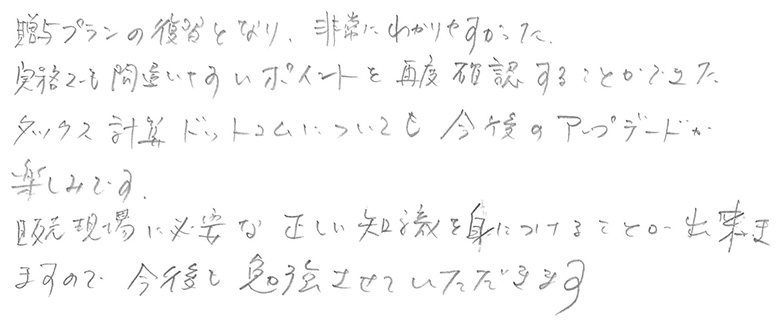 贈与プランの復習となり、非常にわかりやすかった。
実務でも間違いやすいポイントを再度確認することができた
タックス計算ドットコムについても今後のアップデートが
楽しみです。
販売現場に必要な正しい知識を身につけることが出来ま
ますので今後も勉強させていただきます